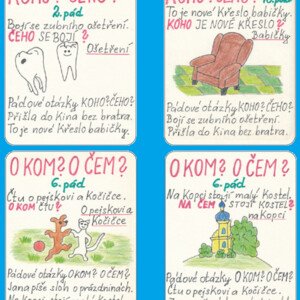 KOHO? ČEHO?
2. pád
Bojí se zubního ošetření.
ČEHO SE BOJÍ ?
Ošetření
Pádové otázky KOHO? ČEHO?
Přišla do kina bez bratra.
To je nové křeslo babičky.
To je nové křeslo babičky.
KOHO JE NOVÉ KŘESLO ?
Babičky
Pádové otázky KOHO? ČEHO?
Bojí se zubního ošetření.
Přišla do kina bez bratra.
O KOM? O ČEM?
6. pád
Čtu o pejskovi a kočičce.
O KOM ČTU ?
O pejskovi a
kočičce
Pádové otázky O KOM? O ČEM?
Jana píše sloh o prázdninách.
O KOM? O ČEM?
6. pád
Na kopci stojí malý kostel.
NA ČEM STOJÍ KOSTEL ?
na kopci
Pádové otázky O KOM? O ČEM?
Čtu o pejskovi a kočičce.